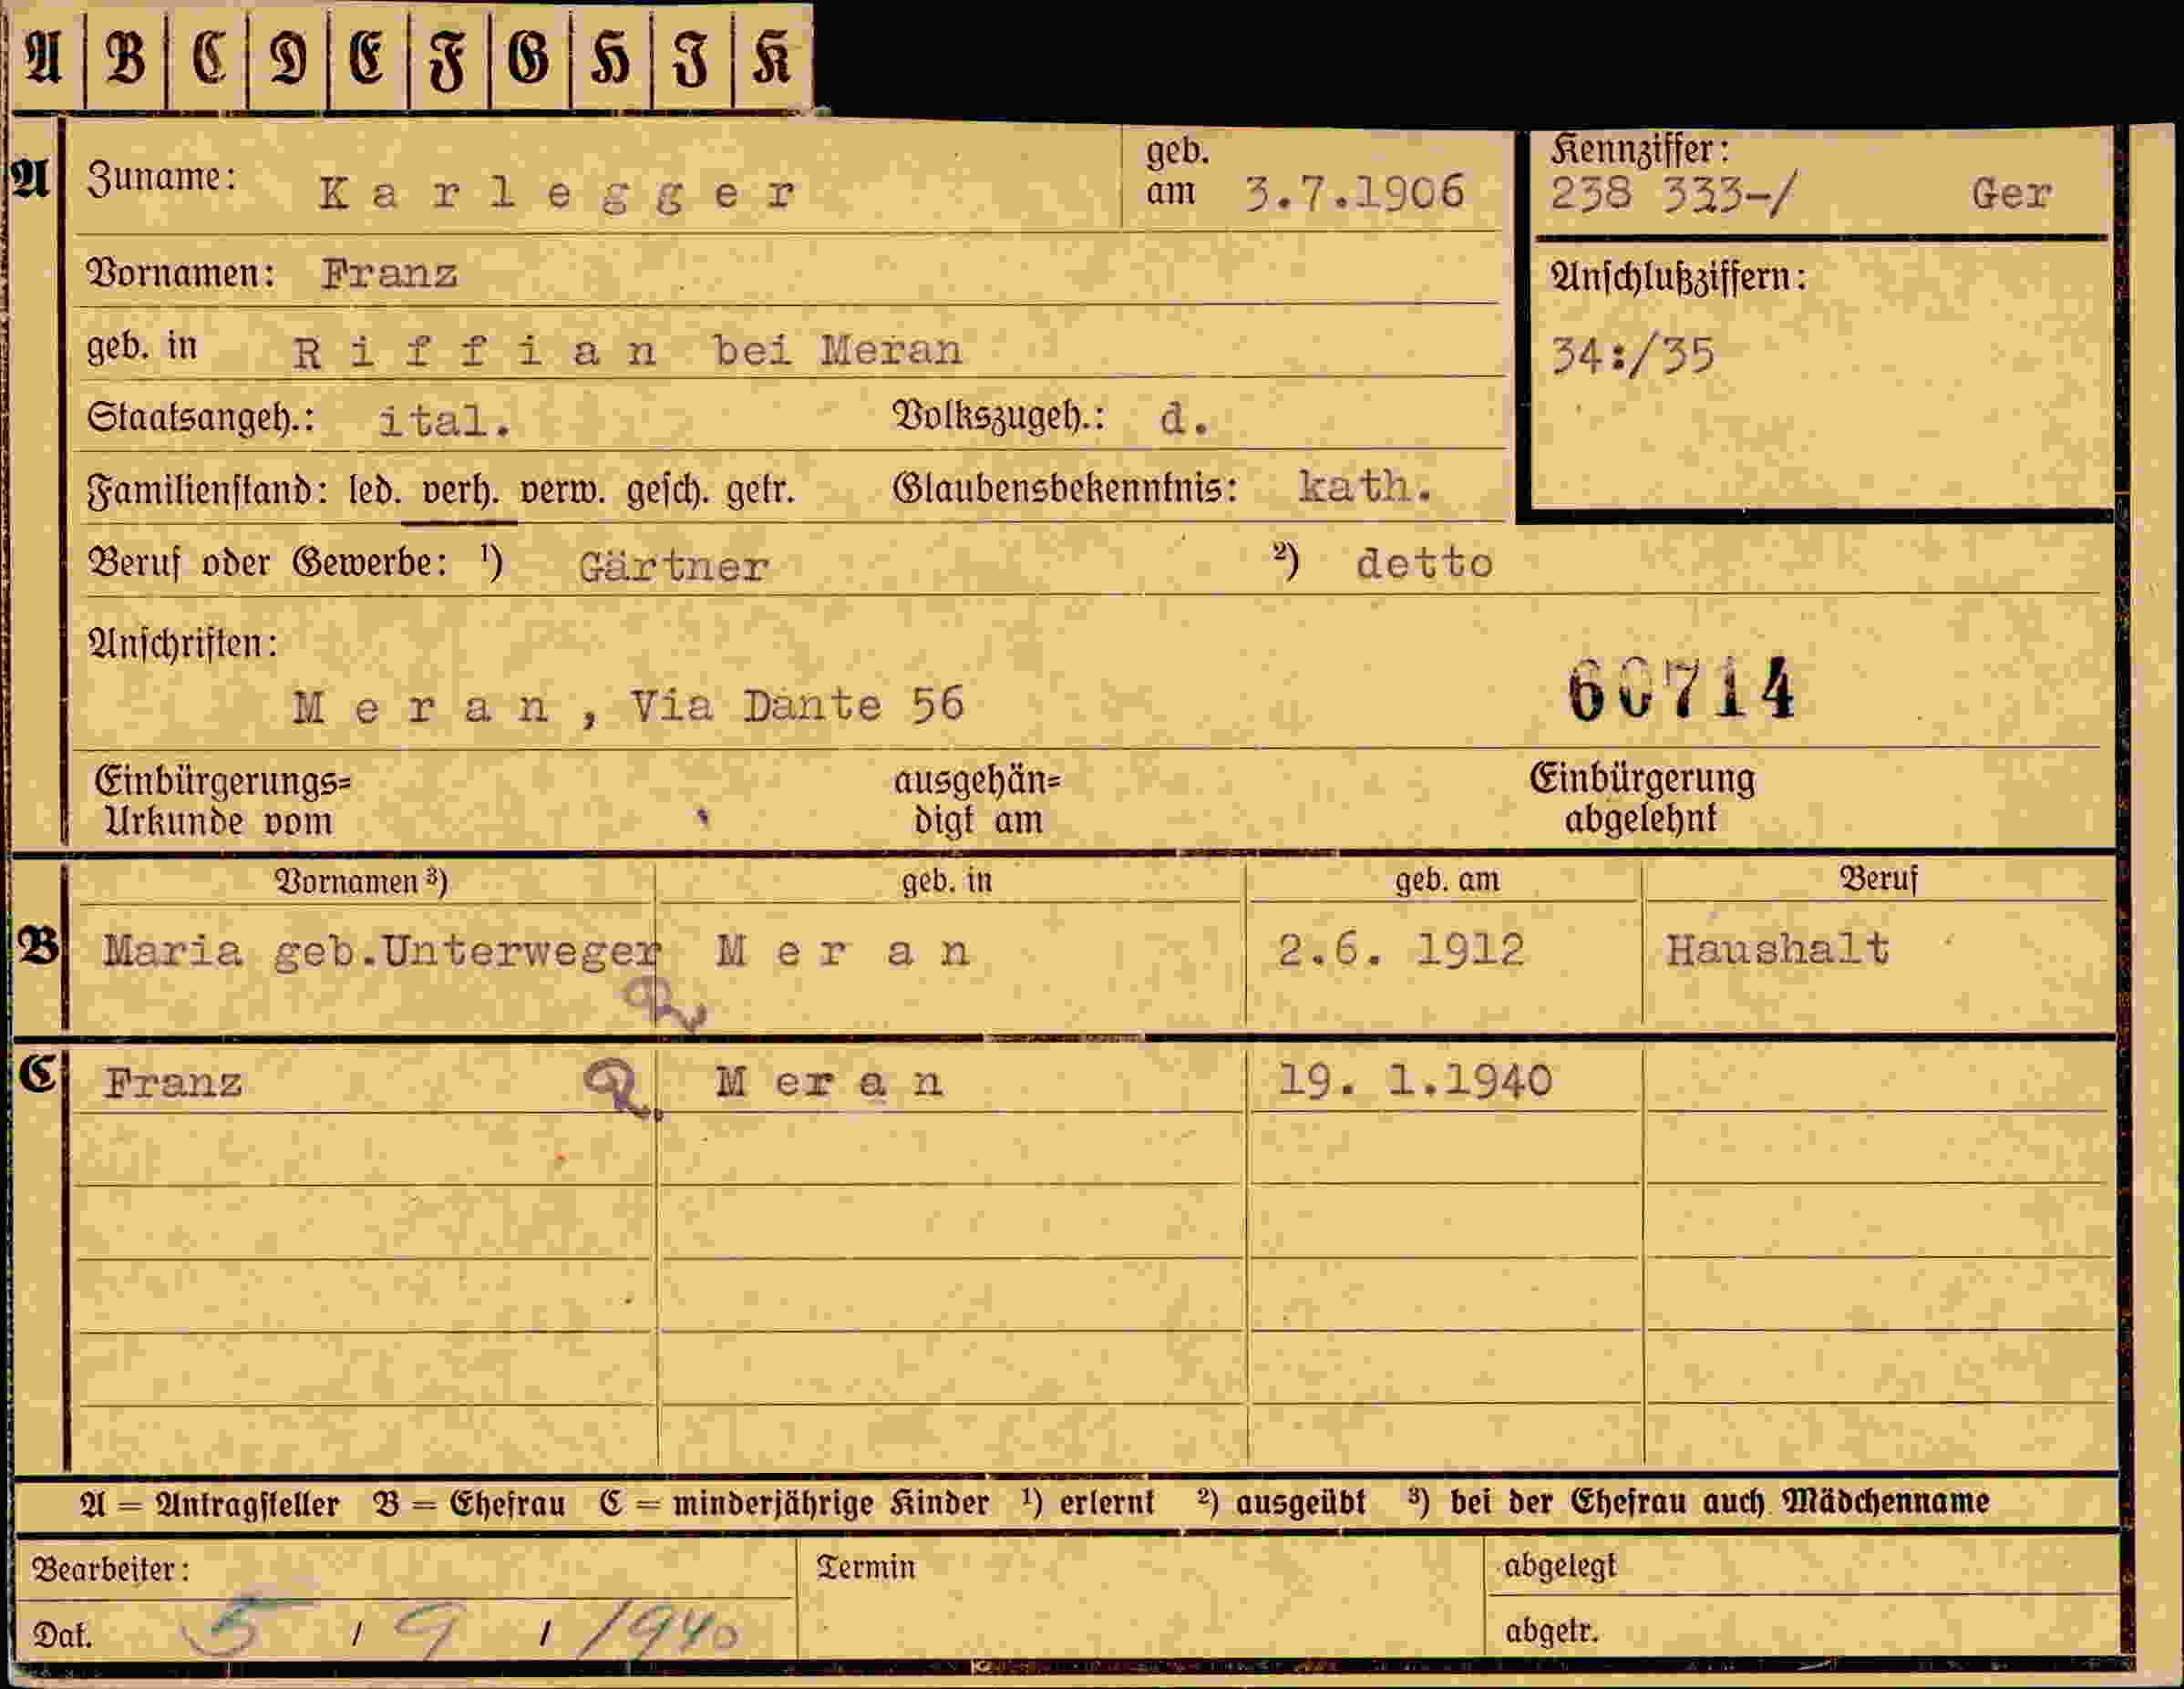 A B C D E F G H I K
A Zuname: Karlegger geb. am 3.7.1906 Kennziffer: 238 333-/ Ger
Vornamen: Franz Anschlußziffern:
geb. in Riffian bei Meran 34:/35
Staatsangeh.: ital. Volkszugeh.: d.
Familienstand: led. verh. verw. gesch. getr. Glaubensbekenntnis: kath.
Beruf oder Gewerbe: ¹) Gärtner ²) detto
Anschriften:
Meran, Via Dante 56 60714
Einbürgerungs= ausgehän= Einbürgerung
Urkunde vom digt am abgelehnt
Vornamen ³) geb. in geb. am Beruf
B Maria geb.Unterweger Meran 2.6. 1912 Haushalt
C Franz Meran 19. 1.1940
A = Antragsteller B = Ehefrau C = minderjährige Kinder ¹) erlernt ²) ausgeübt ³) bei der Ehefrau auch Mädchenname
Bearbeiter: Termin abgelegt
Dat. 5 / 9 / 1940 abgetr.